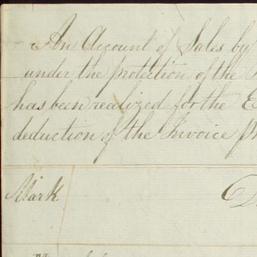 An Account of Sales by
under the protection of the
has been realized for the
deduction of the Invoice
Mark